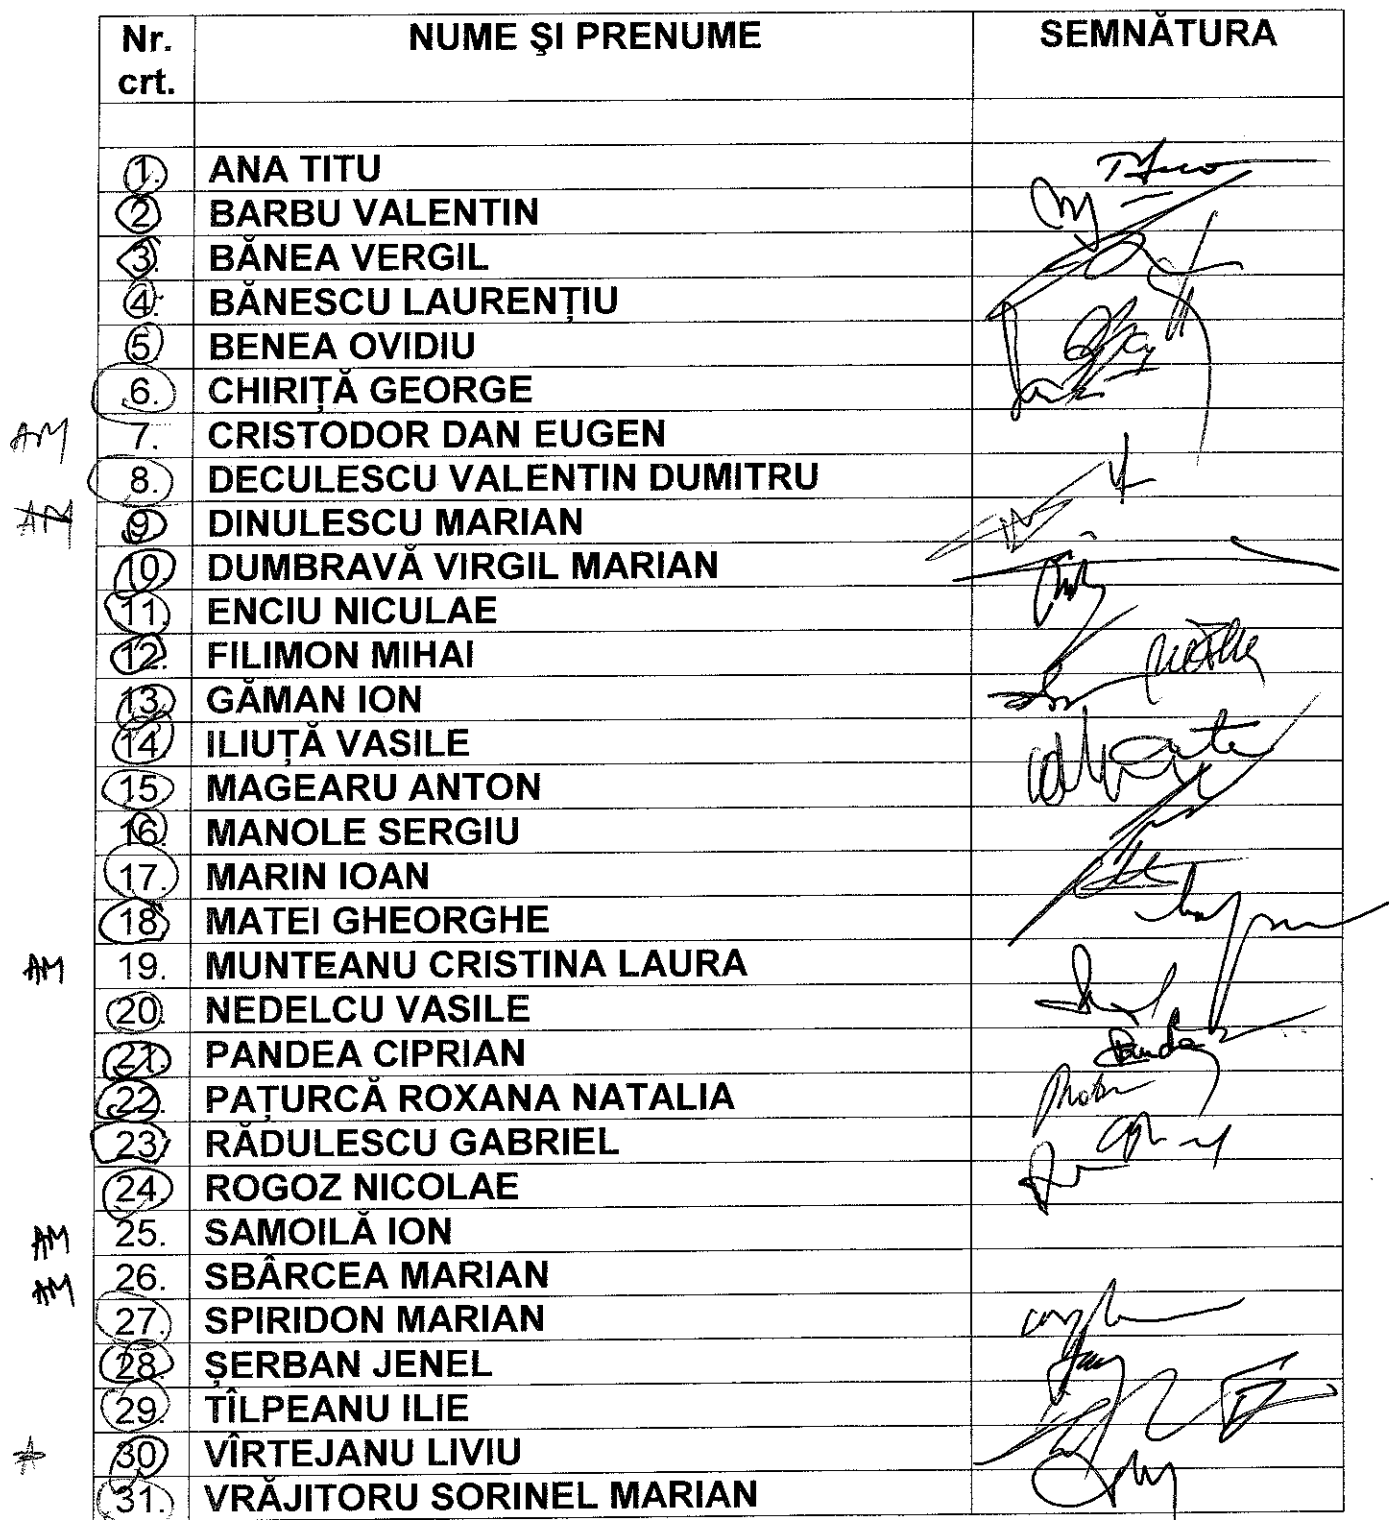 Nr. crt. NUME ŞI PRENUME SEMNĂTURA
1. ANA TITU
2. BARBU VALENTIN
3. BĂNEA VERGIL
4. BĂNESCU LAURENȚIU
5. BENEA OVIDIU
6. CHIRIȚĂ GEORGE
AM 7. CRISTODOR DAN EUGEN
8. DECULESCU VALENTIN DUMITRU
AM 9. DINULESCU MARIAN
10. DUMBRAVĂ VIRGIL MARIAN
11. ENCIU NICULAE
12. FILIMON MIHAI
13. GĂMAN ION
14. ILIUȚĂ VASILE
15. MAGEARU ANTON
16. MANOLE SERGIU
17. MARIN IOAN
18. MATEI GHEORGHE
AM 19. MUNTEANU CRISTINA LAURA
20. NEDELCU VASILE
21. PANDEA CIPRIAN
22. PAȚURCĂ ROXANA NATALIA
23. RĂDULESCU GABRIEL
24. ROGOZ NICOLAE
AM 25. SAMOILĂ ION
AM 26. SBÂRCEA MARIAN
27. SPIRIDON MARIAN
28. ȘERBAN JENEL
29. TÎLPEANU ILIE
30. VÎRTEJANU LIVIU
31. VRĂJITORU SORINEL MARIAN